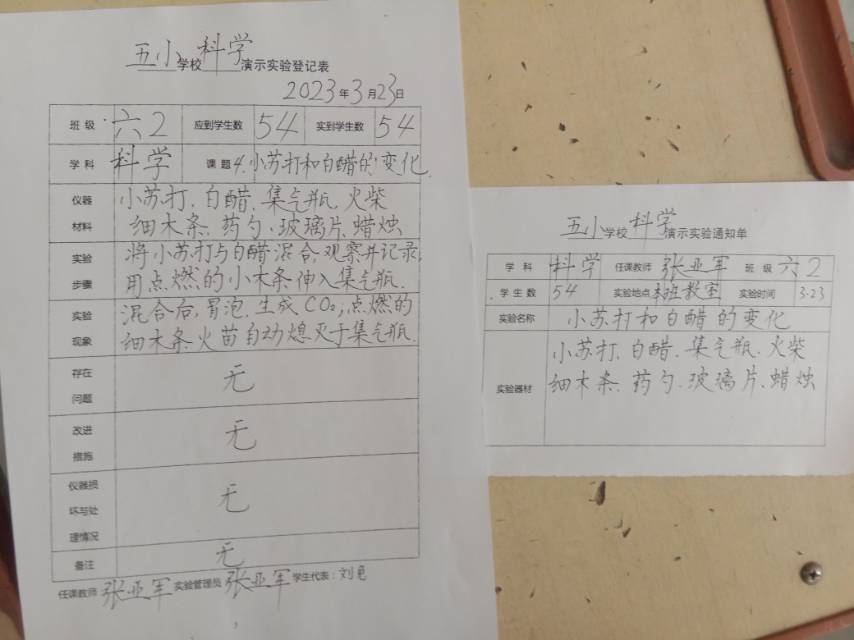 五小学校科学演示实验登记表
2023年3月23日
班级 六2 应到学生数 54 实到学生数 54
学科 科学 课题 4.小苏打和白醋的变化
仪器材料 小苏打、白醋、集气瓶、火柴
细木条、药勺、玻璃片、蜡烛
实验步骤 将小苏打与白醋混合,观察并记录;
用点燃的小木条伸入集气瓶.
实验现象 混合后,冒泡,生成CO₂;点燃的
细木条火苗自动熄灭于集气瓶.
存在问题 无
改进措施 无
仪器损坏与处理情况 无
备注 无
任课教师 张亚军 实验管理员 张亚军 学生代表:刘
五小学校科学演示实验通知单
学科 科学 任课教师 张亚军 班级 六2
学生数 54 实验地点 本班教室 实验时间 3.23
实验名称 小苏打和白醋的变化
实验器材 小苏打、白醋、集气瓶、火柴
细木条、药勺、玻璃片、蜡烛